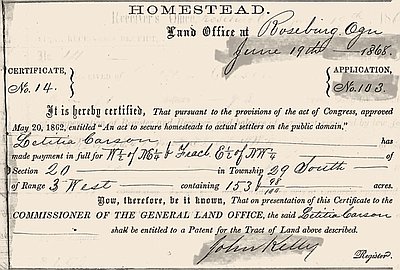 HOMESTEAD.
Land Office at Roseburg Ogn
June 19th 1868.
CERTIFICATE,
No. 14.
APPLICATION,
No. 103
It is hereby certified, That pursuant to the provisions of the act of Congress, approved
May 20, 1862, entitled "An act to secure homesteads to actual settlers on the public domain,"
Letitia Carson has
made payment in full for W½ of NE¼ & Fracl E½ of NW¼ of
Section 20 in Township 29 South
of Range 3 West containing 153 98/100 acres.
Now, therefore, be it known, That on presentation of this Certificate to the
COMMISSIONER OF THE GENERAL LAND OFFICE, the said Letitia Carson
shall be entitled to a Patent for the Tract of Land above described.
John Kelly
Register.